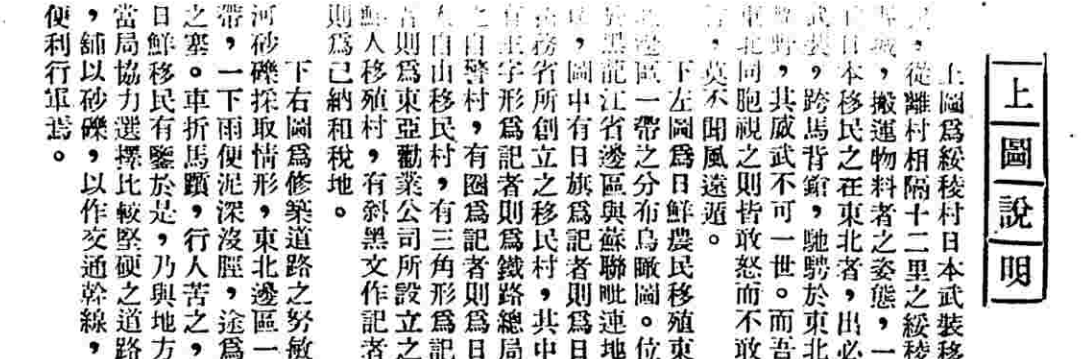 上圖說明
上圖爲綏稜村日本武裝移
，從離村相隔十二里之綏稜
城，搬運物料者之姿態，一
日本移民之在東北者，出必
武裝，跨馬背鎗，馳騁於東北
野，其威武不可一世。而吾
東北同胞視之則皆敢怒而不敢
，莫不聞風遠遁。
下左圖爲日鮮農民移殖東
邊區一帶之分布鳥瞰圖。位
黑龍江省邊區與蘇聯毗連地
，圖中有日旗爲記者則爲日
務省所創立之移民村，其中
有主字形爲記者則爲鐵路總局
之自警村，有圈爲記者則爲日
人自由移民村，有三角形爲記
者則爲東亞勸業公司所設立之
鮮人移殖村，有斜黑文作記者
則爲已納租稅地。
下右圖爲修築道路之努敏
河砂礫採取情形，東北邊區一
帶，一下雨便泥深沒脛，途爲
之塞。車折馬躓，行人苦之，
日鮮移民有鑒於是，乃與地方
當局協力選擇比較堅硬之道路
，鋪以砂礫，以作交通幹線，
便利行軍焉。